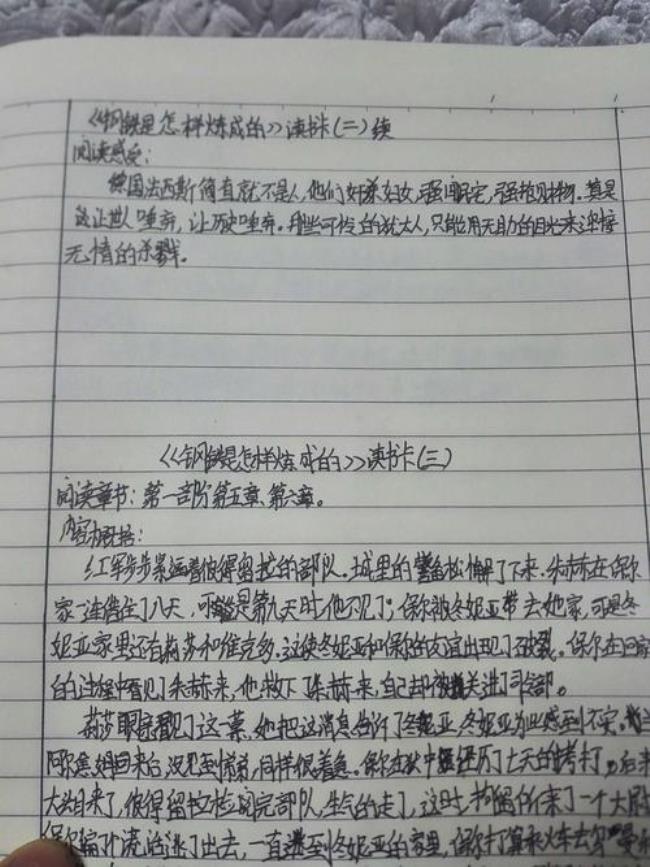 《钢铁是怎样炼成的》读书卡(二)续
阅读感受:
德国法西斯简直就不是人,他们奸杀妇女,强闯民宅,强抢财物。真是
该让世人唾弃,让历史唾弃。那些可怜的犹太人,只能用无助的目光来迎接
无情的杀戮。
《钢铁是怎样炼成的》读书卡(三)
阅读章节:第一部分第五章、第六章。
内容概括:
红军步步紧逼着彼得留拉的部队。城里的警备松懈了下来.朱赫来在保尔
家一连借住了八天,可是第九天时他不见了;保尔被冬妮亚带去她家,可是冬
妮亚家里还有莉莎和维克多.这使冬妮亚和保尔的友谊出现了破裂。保尔在回家
的过程中看见了朱赫来,他救下了朱赫来,自己却被关进了司令部。
莉莎眼亲看见了这一幕,她把这消息告诉了冬妮亚,冬妮亚为此感到不安。
回来后,没见到,同样很着急。保尔在狱中经历了七天的拷打,后来
大头目来了,彼得留拉检阅完部队,生气的走了,这时,拘留所来了一个大尉
保尔 逃了出去,一直逃到冬妮亚的家里,保尔打算乘火车去